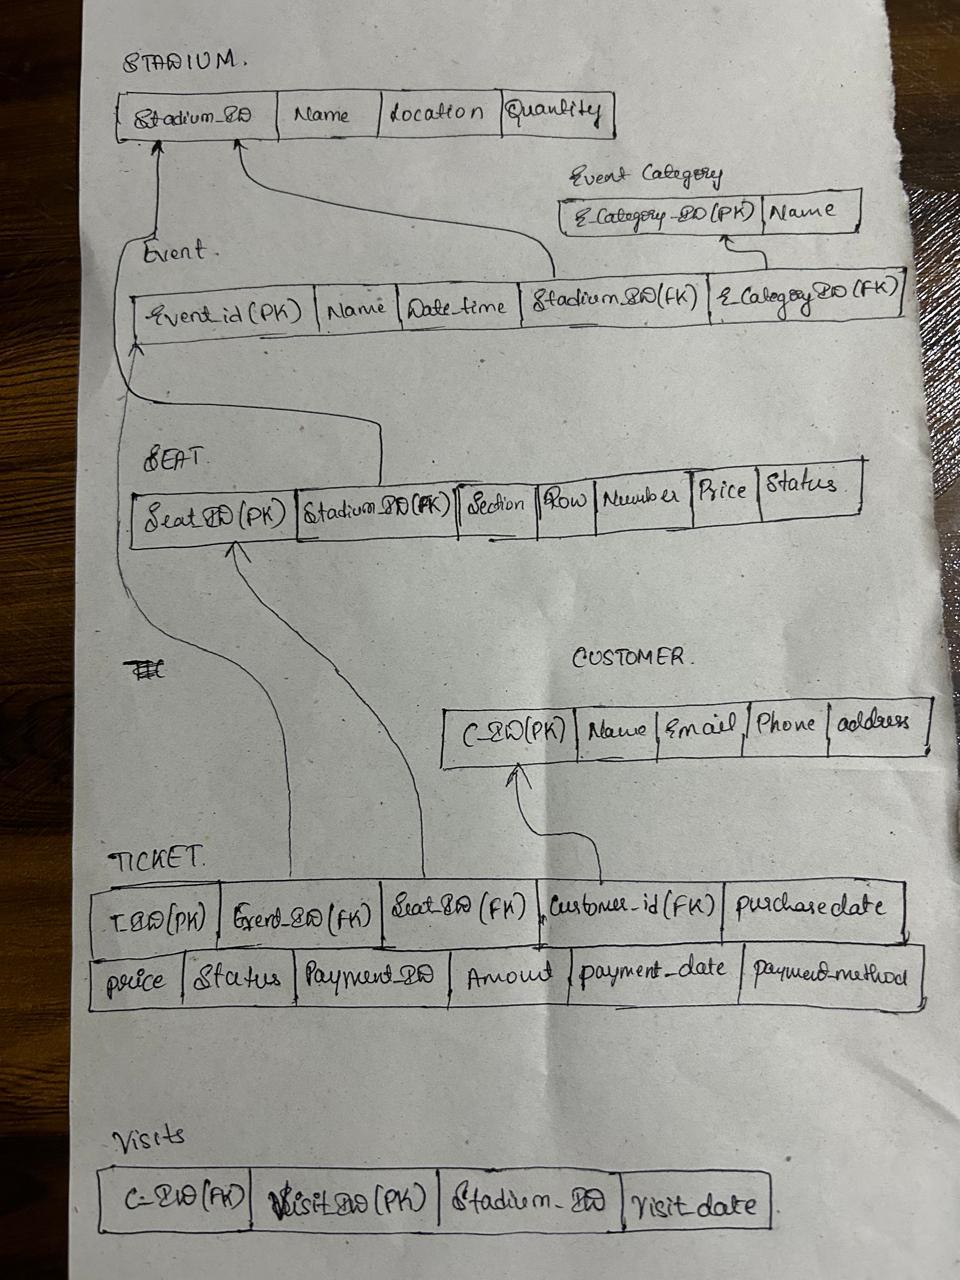 STADIUM.
Stadium_ID Name Location Quantity
Event Category
E_Category_ID(PK) Name
Event.
Event_id(PK) Name Date_time Stadium_ID(FK) E_Category_ID(FK)
SEAT.
Seat_ID(PK) Stadium_ID(PK) Section Row Number Price Status
CUSTOMER.
C_ID(PK) Name Email Phone address
TICKET.
T_ID(PK) Event_ID(FK) Seat_ID(FK) Customer_id(FK) purchasedate
price Status Payment_ID Amount payment_date payment_method
Visits
C_ID(FK) Visit_ID(PK) Stadium_ID Visit_date